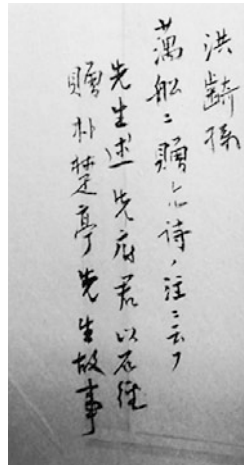 洪齮孫
萬船ニ贈ル詩ノ注ニ云フ
先生述先府君以石経
贈朴楚亭先生故事